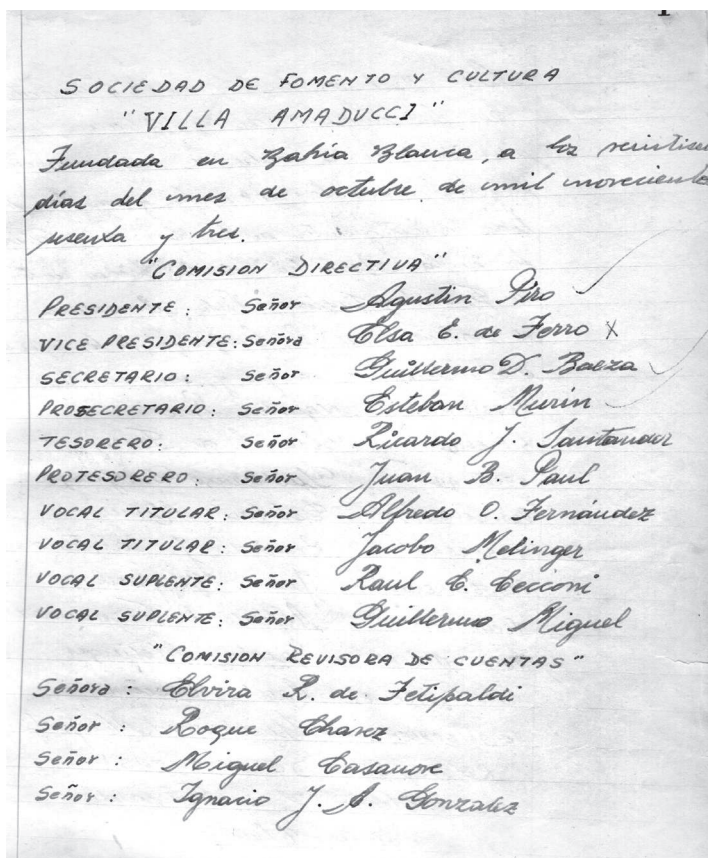 SOCIEDAD DE FOMENTO Y CULTURA
"VILLA AMADUCCI"
Fundada en Bahía Blanca, a los
días del mes de octubre de mil
y tres.
"COMISION DIRECTIVA"
PRESIDENTE: Señor Agustin Piro
VICE PRESIDENTE: Señora Elsa E. de Ferro X
SECRETARIO: Señor Guillermo D. Baeza
PROSECRETARIO: Señor Esteban Murin
TESORERO: Señor Ricardo J. Santander
PROTESORERO: Señor Juan B. Paul
VOCAL TITULAR: Señor Alfredo O. Fernández
VOCAL TITULAR: Señor Jacobo Melinger
VOCAL SUPLENTE: Señor Raul E. Cecconi
VOCAL SUPLENTE: Señor Guillermo Miguel
"COMISION REVISORA DE CUENTAS"
Señora: Elvira R. de
Señor: Roque Chavez
Señor: Miguel Casanove
Señor: Ignacio J. A. Gonzalez